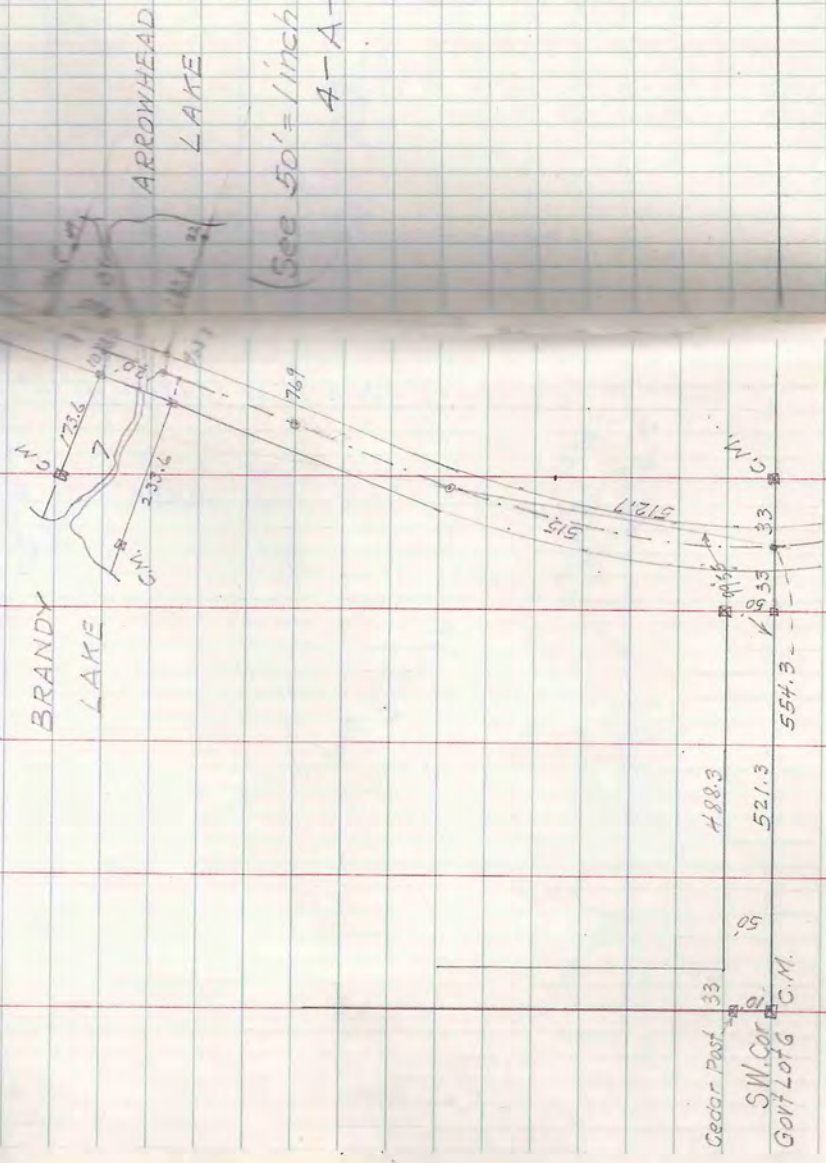 ARROWHEAD
LAKE
(See 50'=1inch
4-A-
BRANDY
LAKE
C.M.
173.6
7
20'
C.M.
233.6
769
515
512.7
C.M.
33
33
50
554.3
488.3
521.3
50'
Cedar Post 33
10'
S.W. Cor
Gov't Lot 6 C.M.